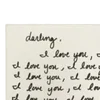 darling,
I love you, I
I love you, I love
I love you, I love
I love you, I love
I love you, I